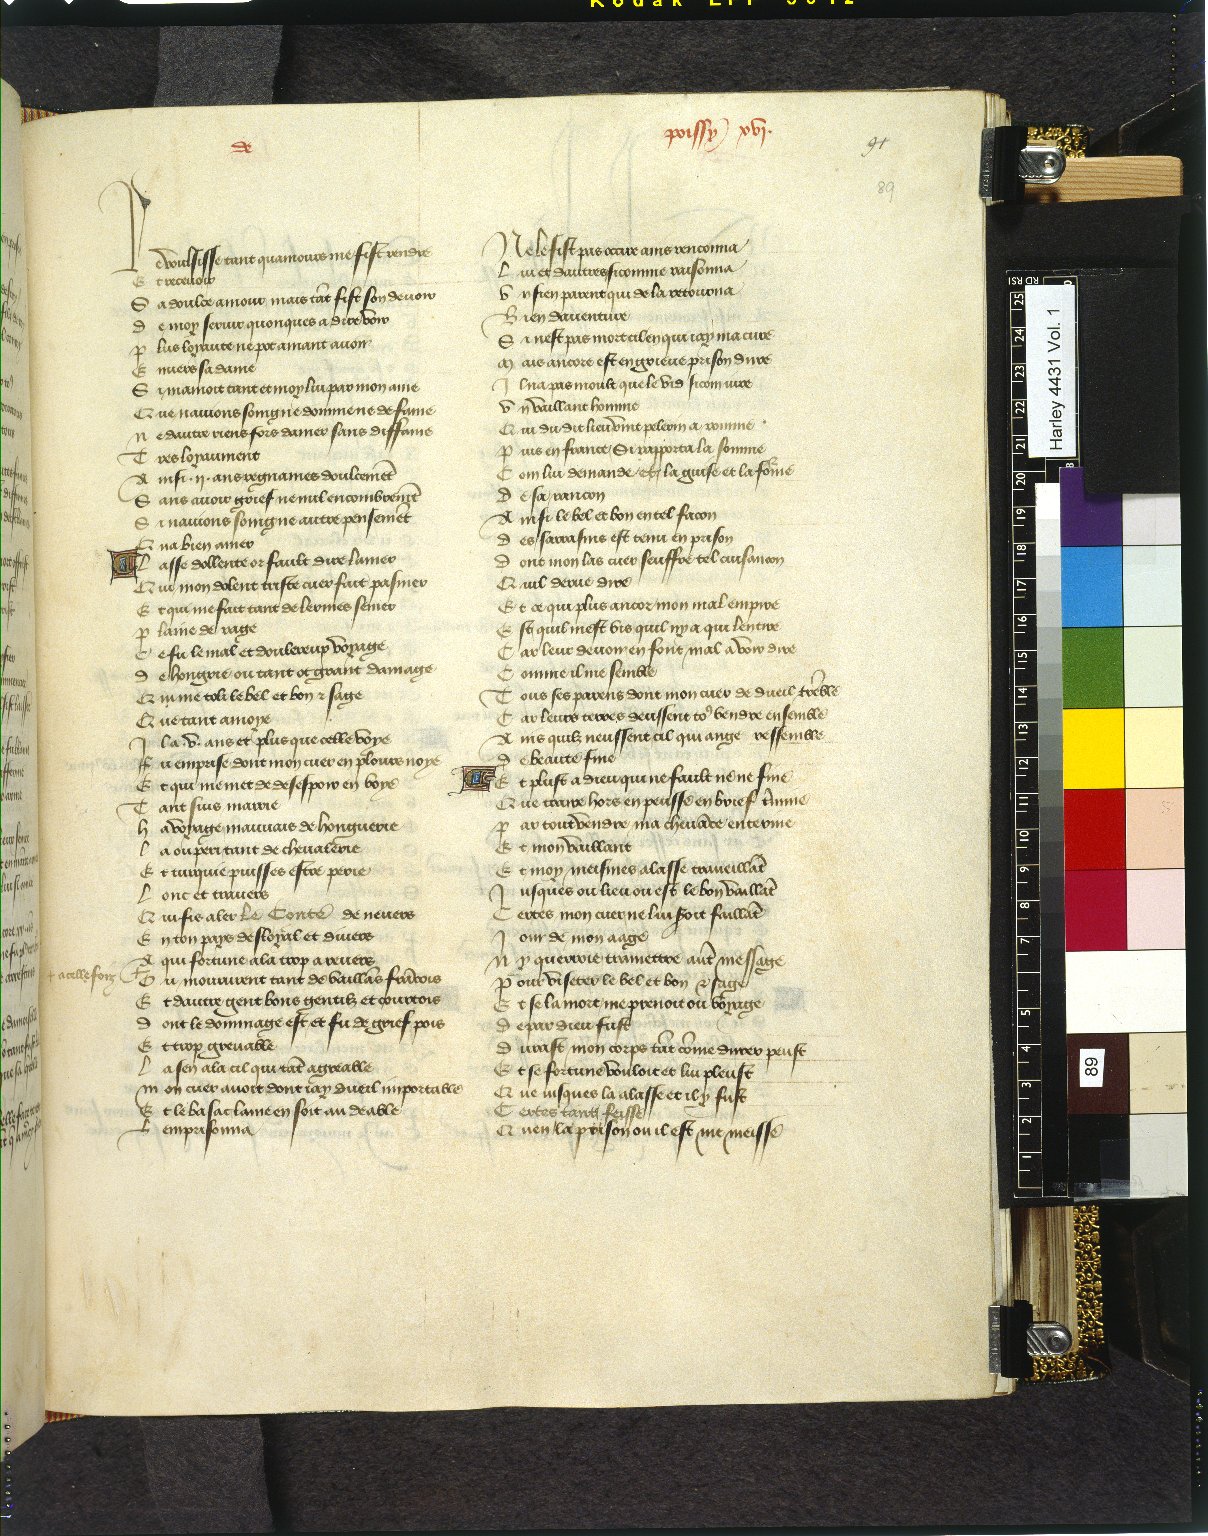 de
poissy xvi.
91
89
P evoulsisse tant quamours me fist rendre
E t recevoir
S a doulce amour mais tāt fist son devoir
d e moy servir quonques a dire voir
p lus loyaute ne pot amant avoir
E nvers sa dame
S i mamoit tant et moy lui par mon ame
Q ue navions soing ne dommene de fame
n e dautre riens fors damer sans diffame
T res loyaument
A insi .ii. ans regnames doulcemēt
S ans avoir grief ne nul encombremēt
S i navions soing ne autre pensemēt
Q na bien amer
L asse dollente or fault dire lamer
Q ui mon dolent triste cuer fait pasmer
E t qui me fait tant de lermes semer
p laine de rage
C e fu le mal et doulereux voyage
d e hongrie ou tant ot grant damage
Q ui me toli le bel et bon z sage
Q ue tant amoye
I l a .v. ans et plus que celle voye
F u emprise dont mon cuer en plours noye
E t qui me met de desespoir en voye
T ant suis marrie
h a voyage mauvais de honguerie
l a ou peri tant de chevalerie
E t turquie puisses estre perie
L onc et travers
Q ui fis aler le Conte de nevers
E n ton pays desloyal et divers
A qui fortune ala trop a revers
+ a celle fois
O u moururent tant de vaillās frācois
E t dautre gent bons gentilz et courtois
D ont le dommage est et fu de grief pois
E t trop grevable
L a fen ala cil qui tāt agreable
m on cuer avoit dont iay dueil importable
E t le basac lame en soit au deable
L emprisonna
N e le fist pas occire ains renconna
L ui et dautres si comme raisonna
V n sien parent qui de la retourna
B ien daventure
S i nest pas mort cil en qui iay ma cure
m ais ancore est en grieve prison dure
I l na pas moult que le vid si com iure
V n vaillant homme
Q ui du dit lieu vint pelerin a romme
P uis en france Si rapporta la somme
C om lui demande et la guise et la forme
D e sa rancon
A insi le bel et bon en tel facon
d es sarrasins est tenu en prison
D ont mon las cuer seuffre tel cuisancon
Q uil derve dire
E t ce qui plus ancor mon mal empire
E st quil mest vis quil ny a qui lentire
C ar leur devoir en font mal a voir dire
C omme il me semble
T ous ses parens dont mon cuer de dueil trēble
C ar leurs terres deussent to9 vendre ensemble
A ins quilz neussent cil qui ange ressemble
d e beaute fine
E t plust a dieu qui ne fault ne ne fine
Q ue traire hors en peusse en brief t'mine
p ar tout vendre ma chevāce enterine
E t mon vaillant
E t moy meismes alasse traveillāt
I usques ou lieu ou est le bon vaillāt
C ertes mon cuer ne lui soit faillāt
I our de mon aage
N y querroie tramettre aut' message
P our visiter le bel et bon z sage
E t se la mort me prenoit ou voyage
D e par dieu fust
D urast mon corps tāt cōme durer peust
E t se fortune vouloit et lui pleust
Q ue iusques la alasse et il y fust
C ertes tant feisse
Q uen la prison ou il est me meisse
Harley 4431 Vol. 1
89